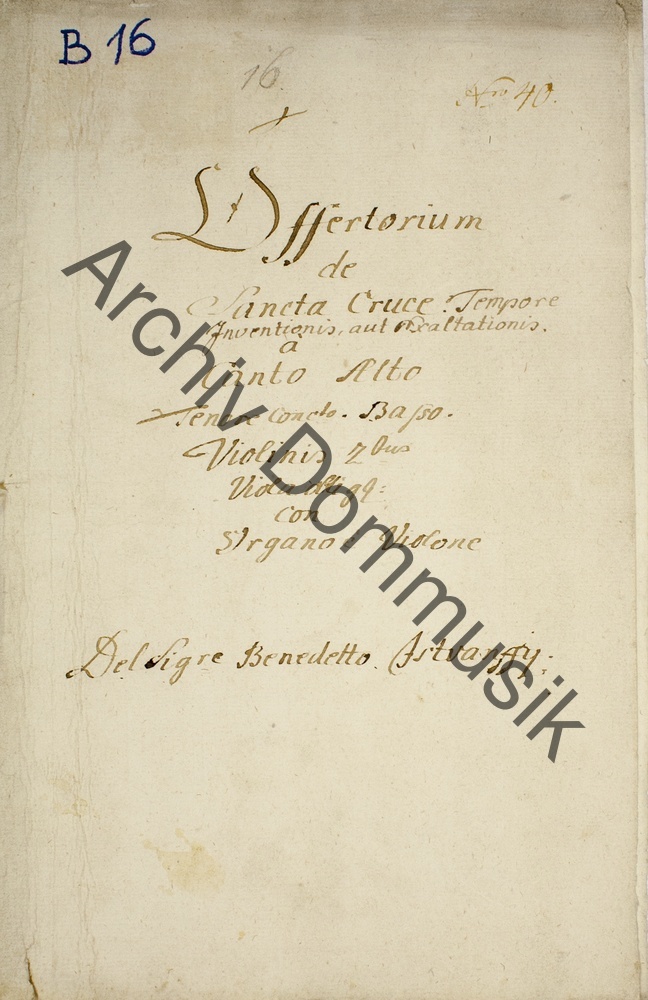 B 16
16.
Nro 40.
Offertorium
de
Sancta Cruce. Tempore
Inventionis, aut Exaltationis.
a
Canto Alto
Tenore Conclo. Basso.
Violinis 2bus
Viola
con
Organo e Violone
Del Sigre Benedetto Istvanffy.
Archiv Dommusik